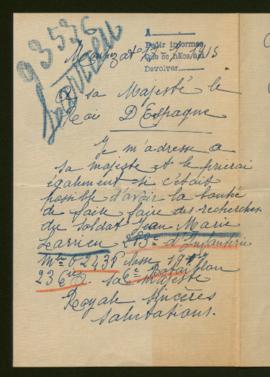 93536
A
Pedir informes
Devolver
1915
A sa Majesté le
Roi D'Espagne
Je m'adresse a
sa majeste et le prierai
également si c'était
possible d'avoir la bonté
de faire faire des recherches
du soldat Jean Marie
Larrieu 283e d'Infanterie
Mle 02436 classe
23e Cie 6e Bataillon
sa majeste
Royale Sincères
salutations.